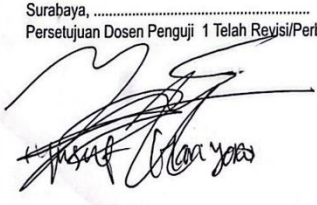 Surabaya, ........................................................
Persetujuan Dosen Penguji 1 Telah Revisi/Perb